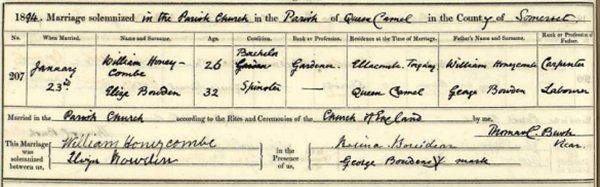 1894. Marriage solemnized in the Parish Church in the Parish of Queen Camel in the County of Somerset
No. When Married. Name and Surname. Age. Condition. Bank or Profession. Residence at the Time of Marriage. Father's Name and Surname. Rank or Profession of Father.
207 January 23rd William Honey-Combe 26 Bachelor Gardener Ellacombe. Torquay William Honeycombe Carpenter
Eliza Bowden 32 Spinster — Queen Camel George Bowden Labourer
Married in the Parish Church according to the Rites and Ceremonies of the Church of England by me,
Thomas C. Vicar.
This Marriage was solemnized between us, William Honeycombe
Eliza Bowden
in the Presence of us, Rosina Bowden
George Bowdens X mark